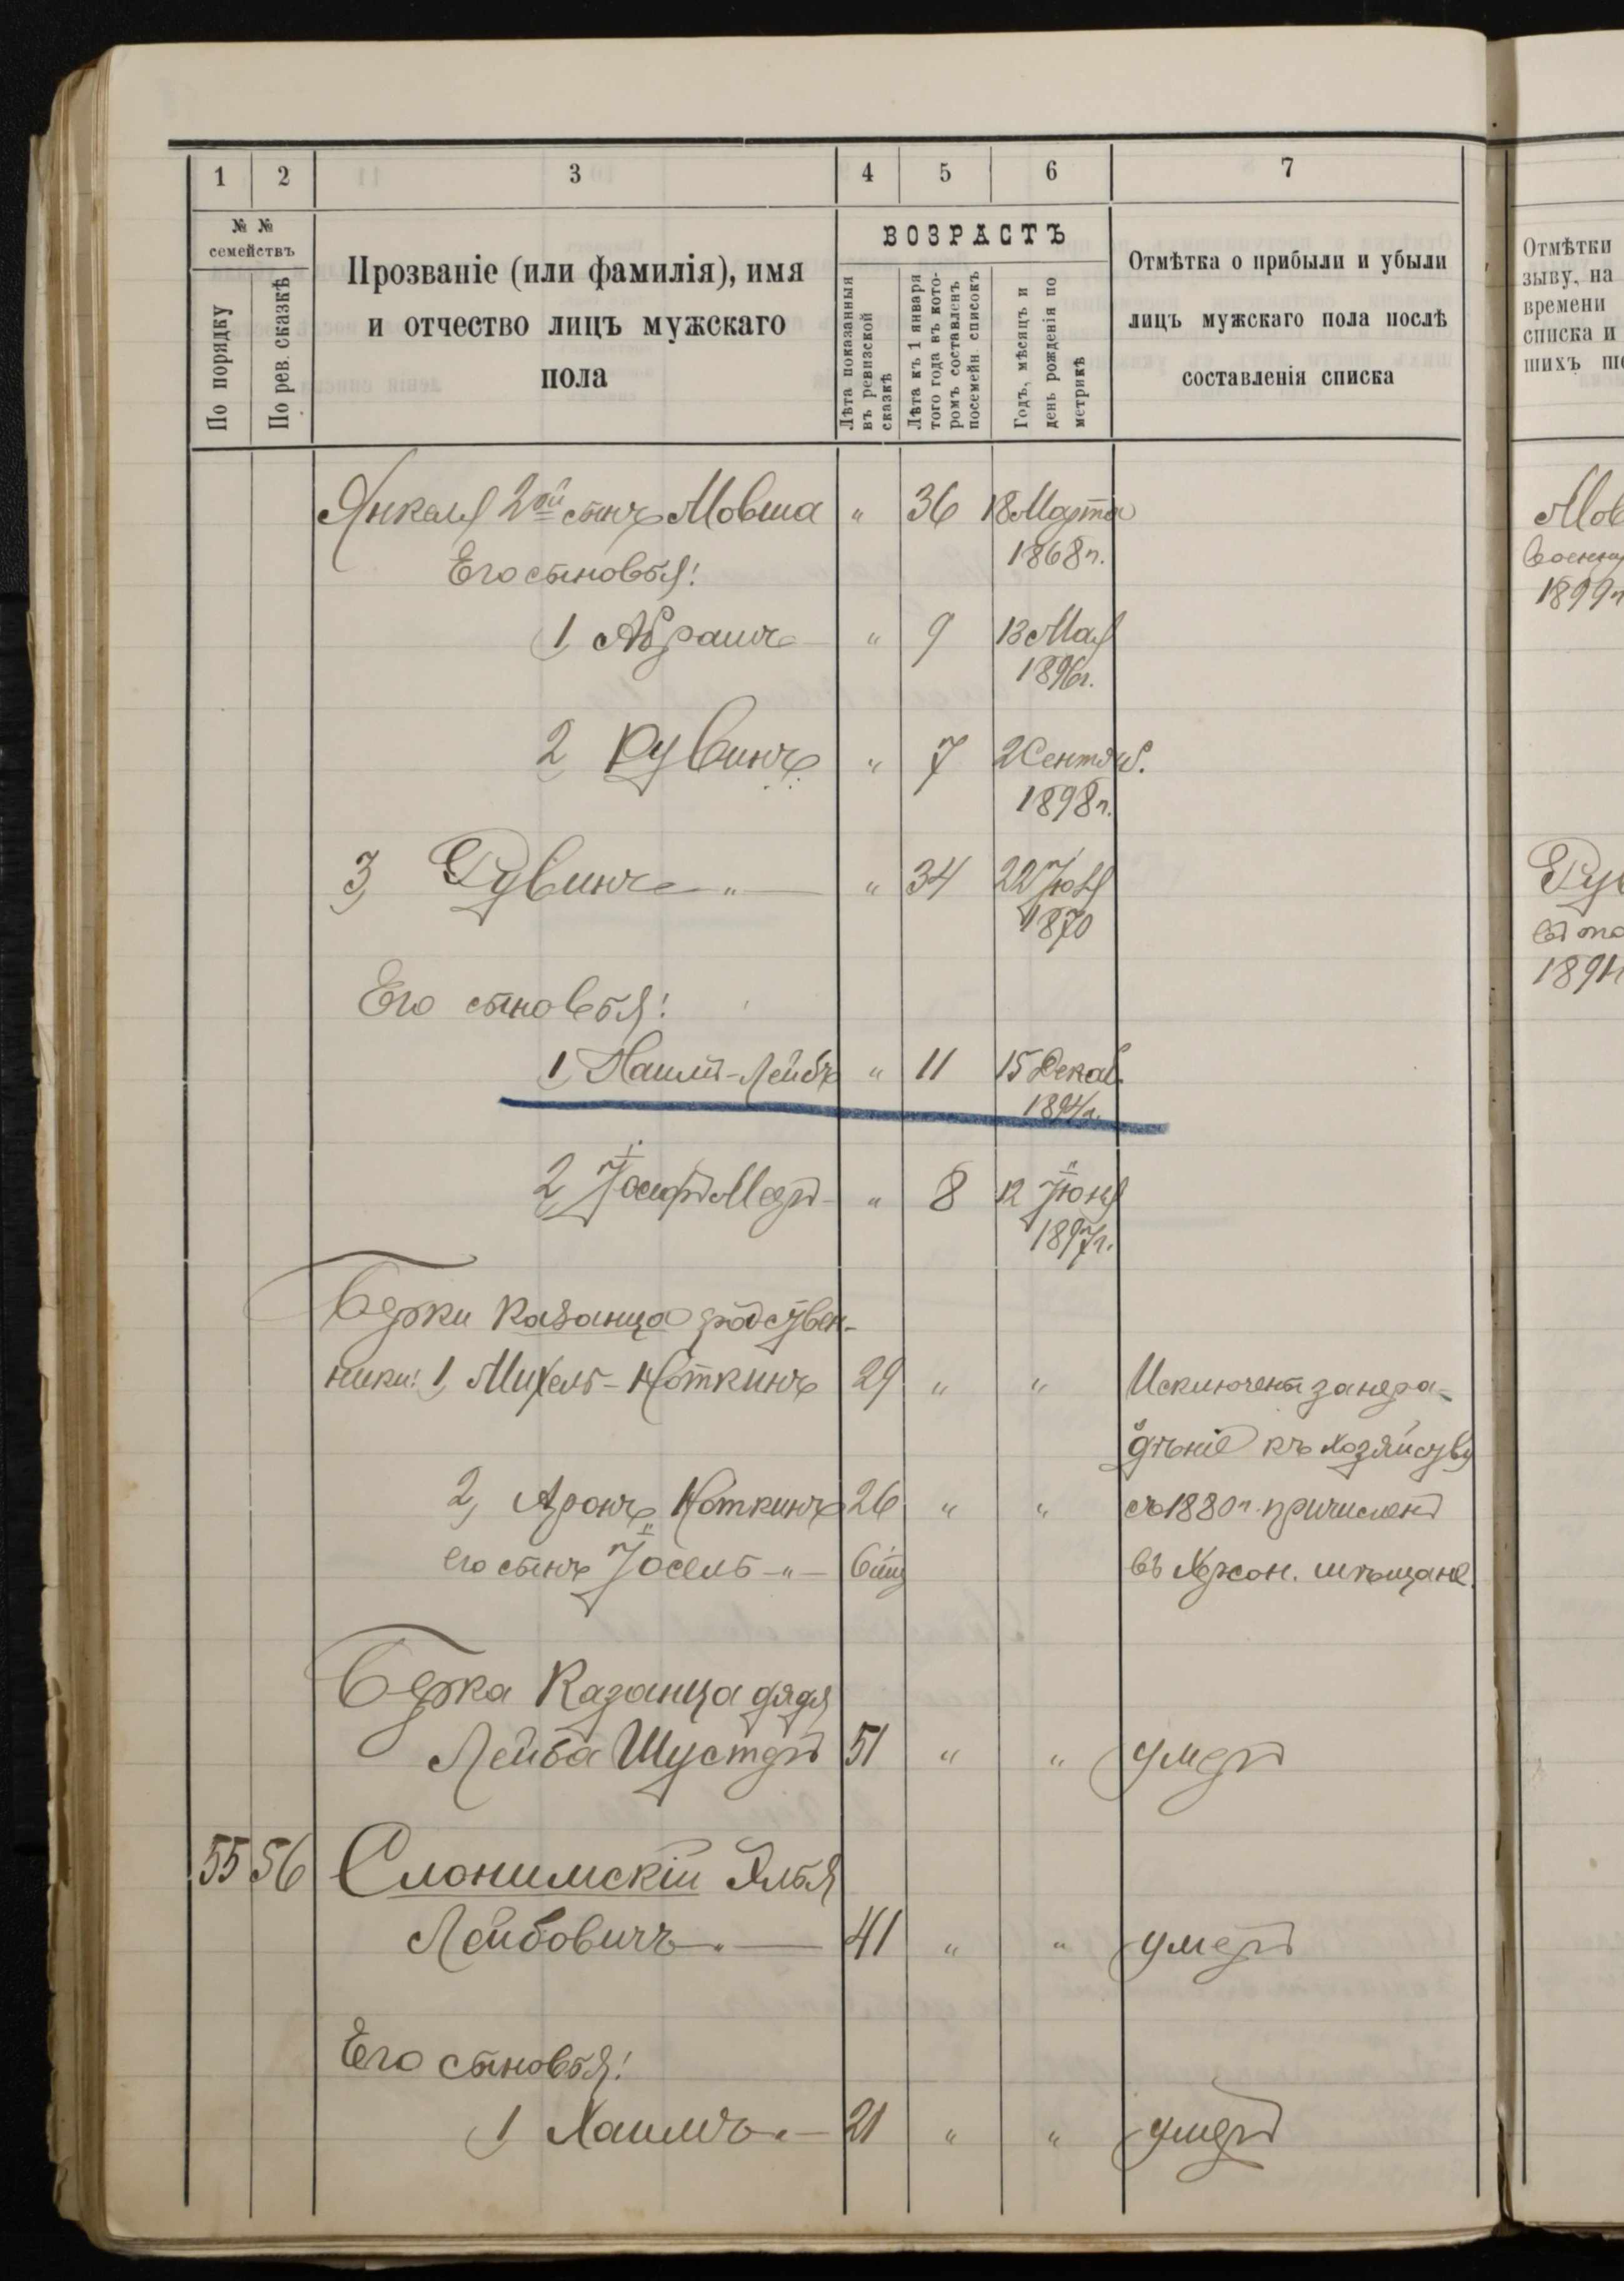 1 2 3 4 5 6 7
№ №
семействъ
По порядку
По рев. сказкѣ
Прозваніе (или фамилія), имя
и отчество лицъ мужскаго
пола
ВОЗРАСТЪ
Лѣта показанныя
въ ревизской
сказкѣ
Лѣта къ 1 января
того года въ кото-
ромъ составленъ
посемейн. списокъ
Годъ, мѣсяцъ и
день рожденія по
метрикѣ
Отмѣтка о прибыли и убыли
лицъ мужскаго пола послѣ
составленія списка
Отмѣтки
зыву, на
времени
списка и
шихъ
Янкеля 2ой сынъ Мовша " 36 18 Марта
1868 г.
Его сыновья:
1, Абрамъ " 9 13 Мая
1896 г.
2, Рувинъ " 7 2 Сентяб.
1898 г.
3, Рувинъ " — " 34 22 Юля
1870
Его сыновья:
1, Хаимъ-Лейбъ " 11 15 Декаб.
1894 г.
2, Іосифъ Меръ — " 8 12 Іюня
1897 г.
Берки Казанца родствен-
ники: 1, Михель - Ноткинъ 29 " " Исключенъ за нера-
дѣніе къ хозяйству
2, Аронъ Ноткинъ 26 " " съ 1880 г. причисленъ
его сынъ Іосель - " - 6 въ Херсон. мѣщане.
Берка Казанца дядя
Лейба Шустеръ 51 " " умеръ
55 56 Слонимскій Элья
Лейбовичъ — 41 " " умеръ
Его сыновья:
1, Хаимъ — 21 " " умеръ
Мов
военну
1899
Рув
1891